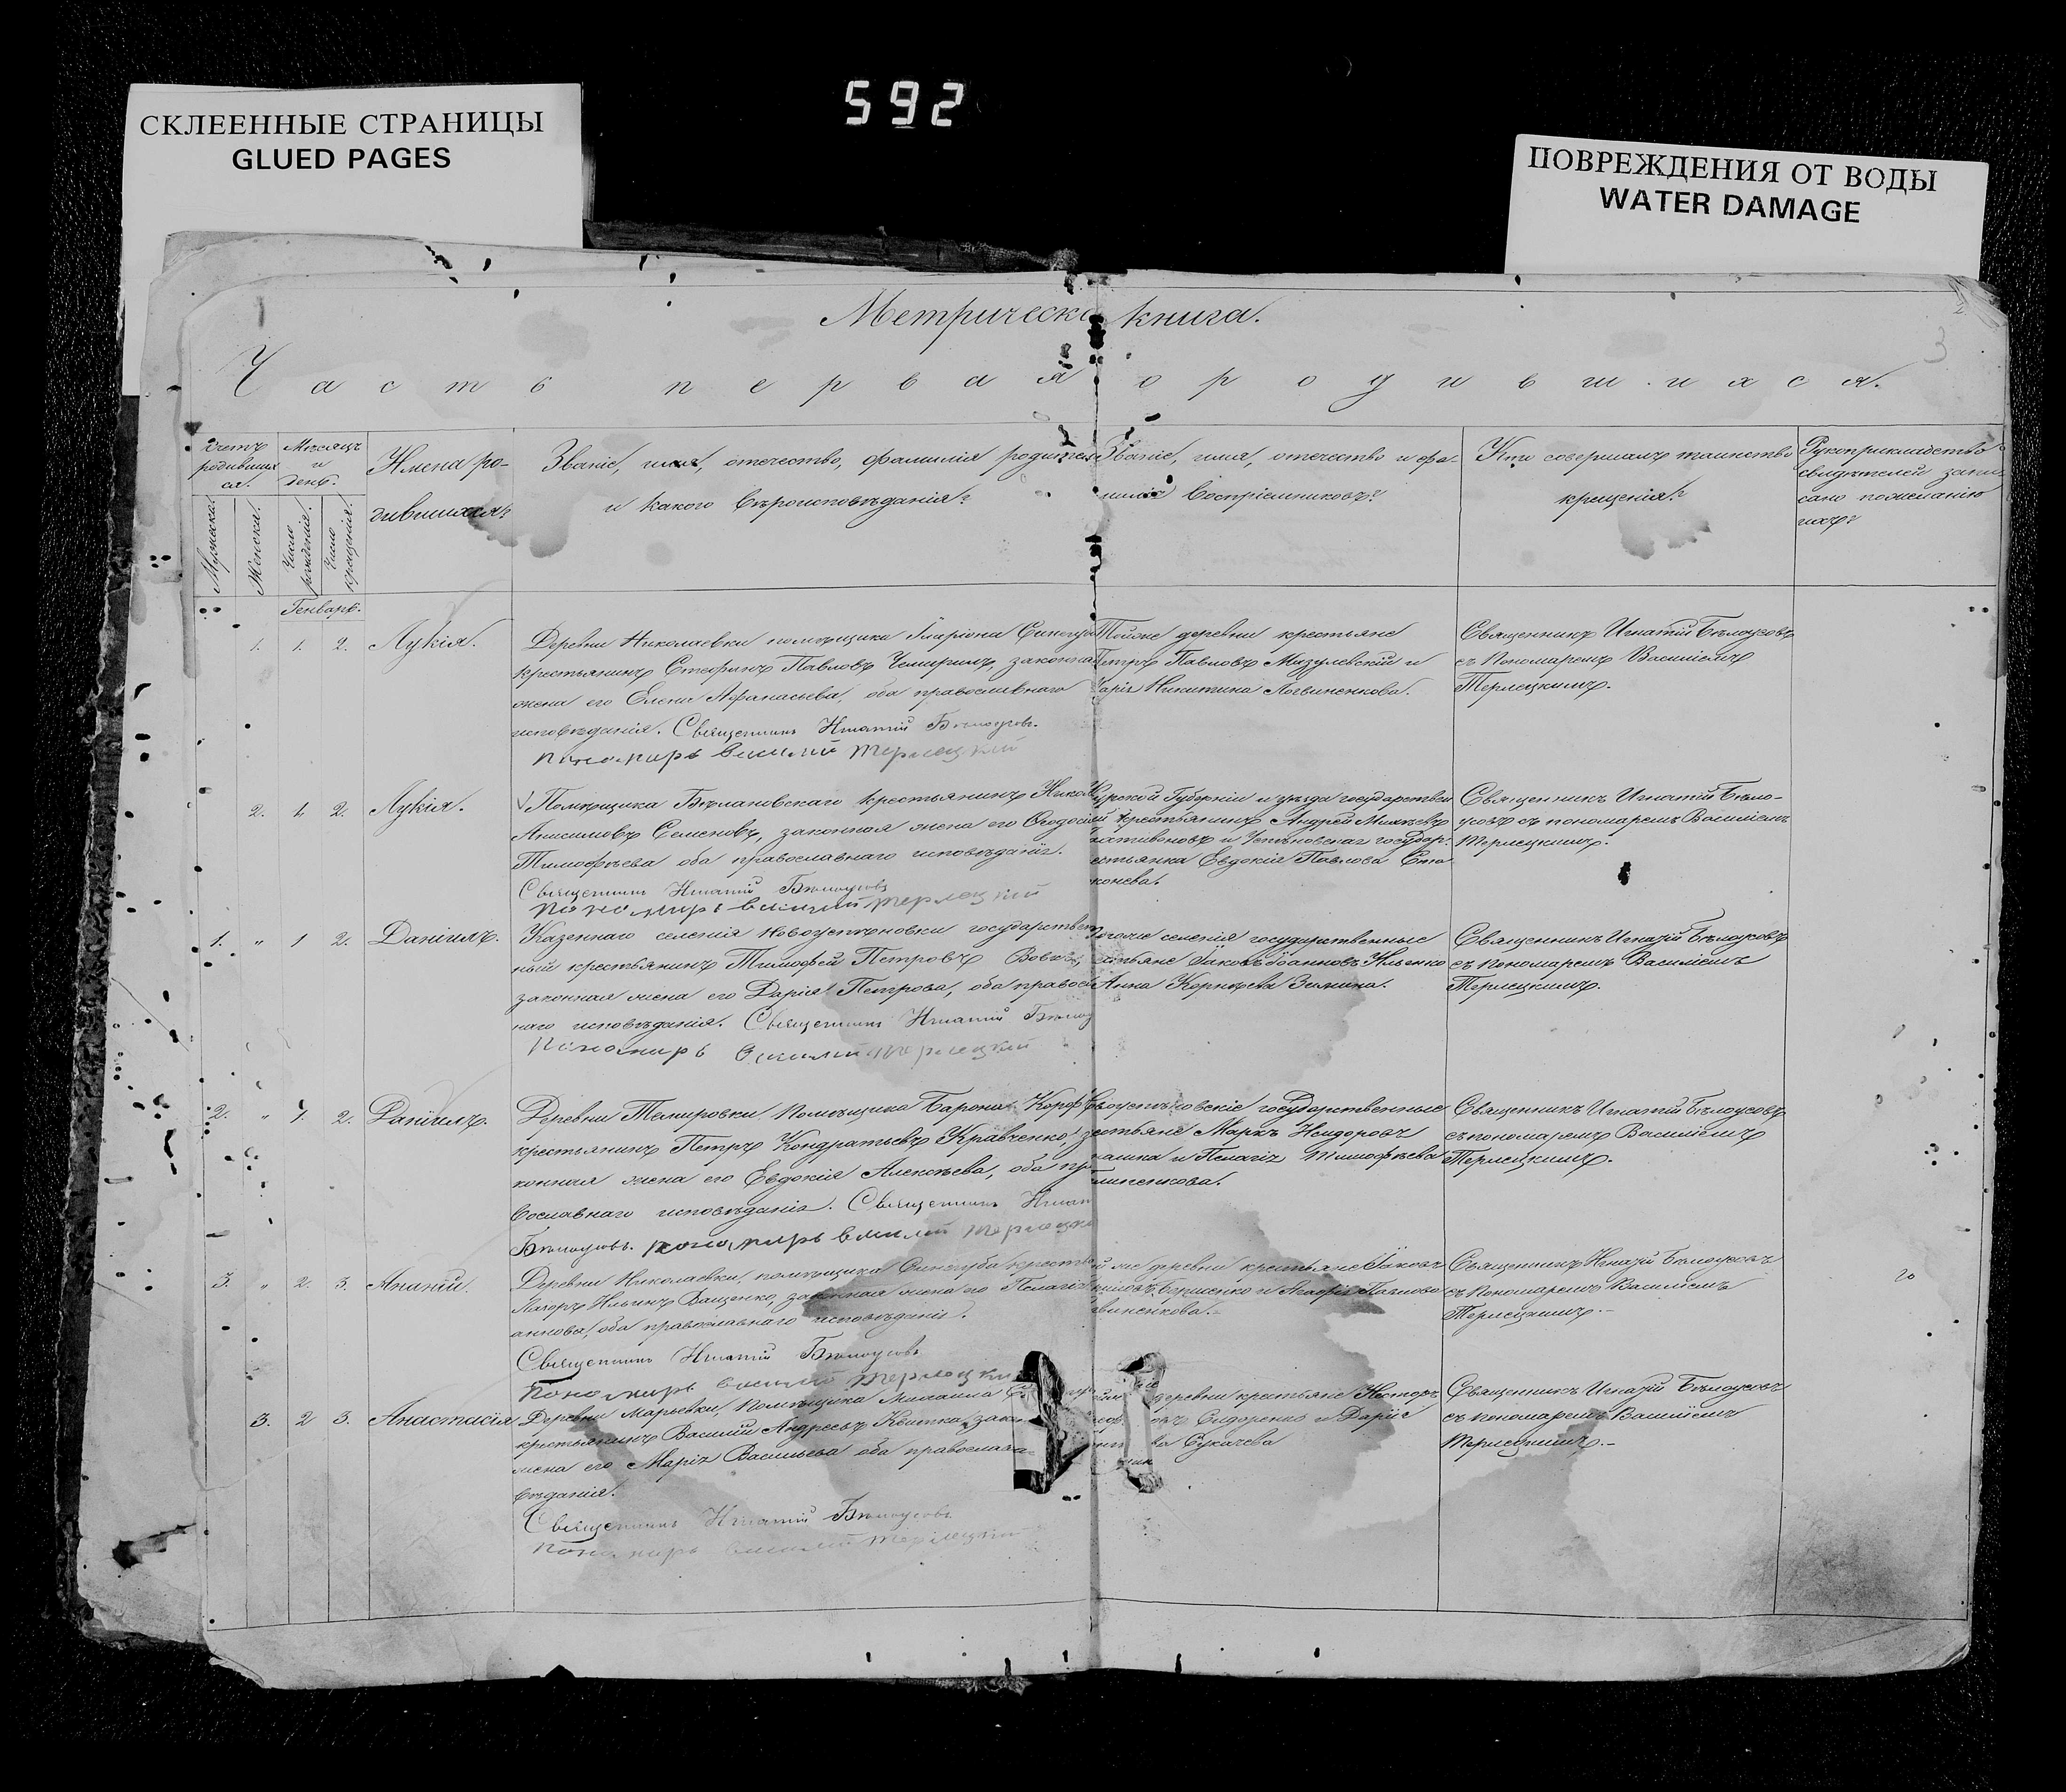 592
СКЛЕЕННЫЕ СТРАНИЦЫ
GLUED PAGES
ПОВРЕЖДЕНИЯ ОТ ВОДЫ
WATER DAMAGE
3
Метрическа книга.
Часть первая о родившихся.
Счетъ родившихся.
Мужеска.
Женска.
Мѣсяцъ и день.
Число рожденія.
Число крещенія.
Имена ро-
дившихся?
Званіе, имя, отечество, фамилія родител
и какого вѣроисповѣданія?
Званіе, имя, отечество и фа-
милія воспріемниковъ?
Кто совершалъ таинство
крещенія?
Рукоприкладство
свидѣтелей запи
сано пожеланію
ихъ?
Генварь.
1. 1. 2. Лукія.
Деревни Николаевки помѣщика Иларіона Синегуб
крестьянинъ Стефанъ Павловъ Чемирин, законна
жена его Елена Афанасьева, оба православнаго
исповѣданія. Священникъ Игнатій Бѣлоусовъ.
Пономарь Василій Терлецкій
Тойже деревни крестьяне
Петръ Павловъ Мазулевскій и
Марія Никитина Логвиненкова.
Священникъ Игнатій Бѣлоусовъ
съ Пономаремъ Василіемъ
Терлецкимъ.
2. 1. 2. Лукія.
Помѣщика Бѣлановскаго крестьянинъ Никол
Анисимовъ Семеновъ, законная жена его Ѳеодосі
Тимофѣева оба православнаго исповѣданія.
Священникъ Игнатій Бѣлоусовъ
Пономарь Василій Терлецкій
Курской Губерніи и уѣзда государствен
й крестьянинъ Андрей Михѣевъ
и Успѣновская государ.
естьянка Евдокія Павлова Сто
конева.
Священникъ Игнатій Бѣло-
усовъ съ пономаремъ Василіемъ
Терлецкимъ.
1. " 1 2. Даніилъ.
Казеннаго селенія Новоуспѣновки государствен
ный крестьянинъ Тимофей Петровъ Вовкъ,
законная жена его Дарія Петрова, оба правос
наго исповѣданія. Священникъ Игнатій Бѣлоу
Пономарь Василій Терлецкій
тогоже селенія государственные
стьяне Іаковъ Іоанновъ Ильенко
Анна Корнѣева Зимина.
Священникъ Игнатій Бѣлоусовъ
съ пономаремъ Василіемъ
Терлецкимъ.
2. " 1. 2. Даніилъ.
Деревни Темировки, Помѣщика Барона Корф
крестьянинъ Петръ Кондратьевъ Кравченко, з
конная жена его Евдокія Алексѣева, оба пра
вославнаго исповѣданія. Священникъ Игнат
Бѣлоусовъ. Пономарь Василій Терлецкі
воуспѣновскіе государственные
естьяне Маркъ Исидоровъ
и Пелагія Тимофѣева
Священникъ Игнатій Бѣлоусовъ
съ пономаремъ Василіемъ
Терлецкимъ.
3. " 2. 3. Ананій.
Деревни Николаевки, помѣщика Синегуба крестья
Ягоръ Ильинъ Ващенко, законная жена его Пелагія
аннова, оба православнаго исповѣданія.
Священникъ Игнатій Бѣлоусовъ
Пономарь Василій Терлецкій
й же деревни крестьяне Іаковъ
Борисенко и Агафія Павлова
виненкова.
Священникъ Игнатій Бѣлоусовъ
съ Пономаремъ Василіемъ
Терлецкимъ.-
20
3. 2 3. Анастасія
Деревни Марьевки, Помѣщика Михаила
крестьянинъ Василій Андреевъ Квитка, зак
жена его Марія Васильева оба православна
вѣданія.
Священникъ Игнатій Бѣлоусовъ
Пономарь Василій Терлецкій
деревни крестьяне Несторъ
Сидоренко и Дарія
Сукачева
Священникъ Игнатій Бѣлоусовъ
съ пономаремъ Василіемъ
Терлецкимъ.-